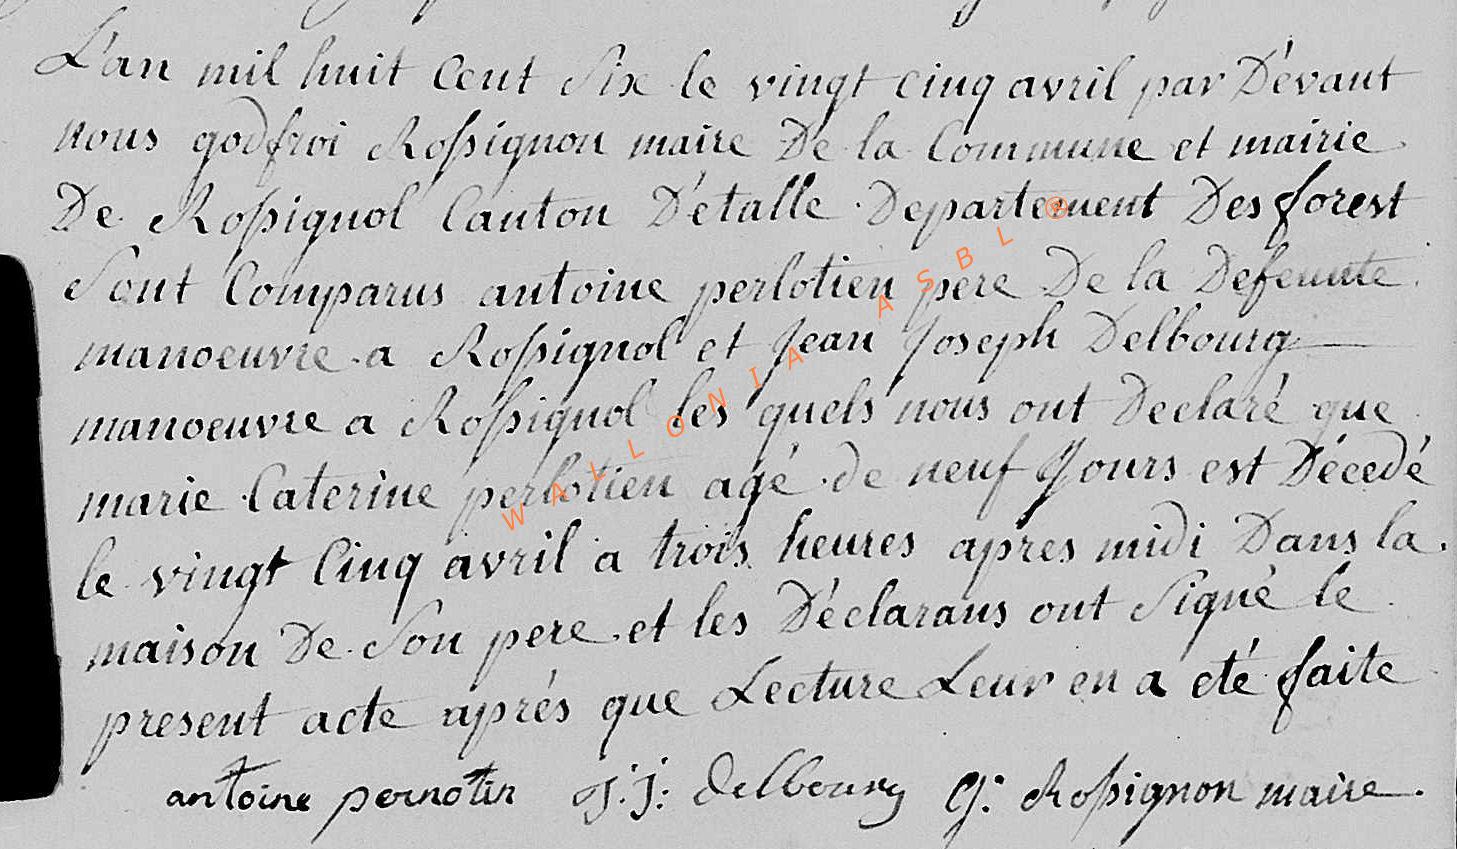 L'an mil huit Cent Six le vingt cinq avril par Dévant
nous godfroi Rossignon maire De la Commune et mairie
De Rossignol Canton D'étalle Departement Des forest
Sont Comparus antoine perlotien pere De la Defeunte
manoeuvre a Rossignol et Jean Joseph Delbourg
manoeuvre a Rossignol les quels nous ont Declaré que
marie Caterine perlotien agé de neuf Jours est Décedé
le vingt Cinq avril a trois heures apres midi Dans la
maison De Son pere et les Déclarans ont Signé le
present acte aprés que Lecture Leur en a eté faite
antoine pernotin J: J: delbourg G: Rossignon maire.
WALLONIA ASBL ®